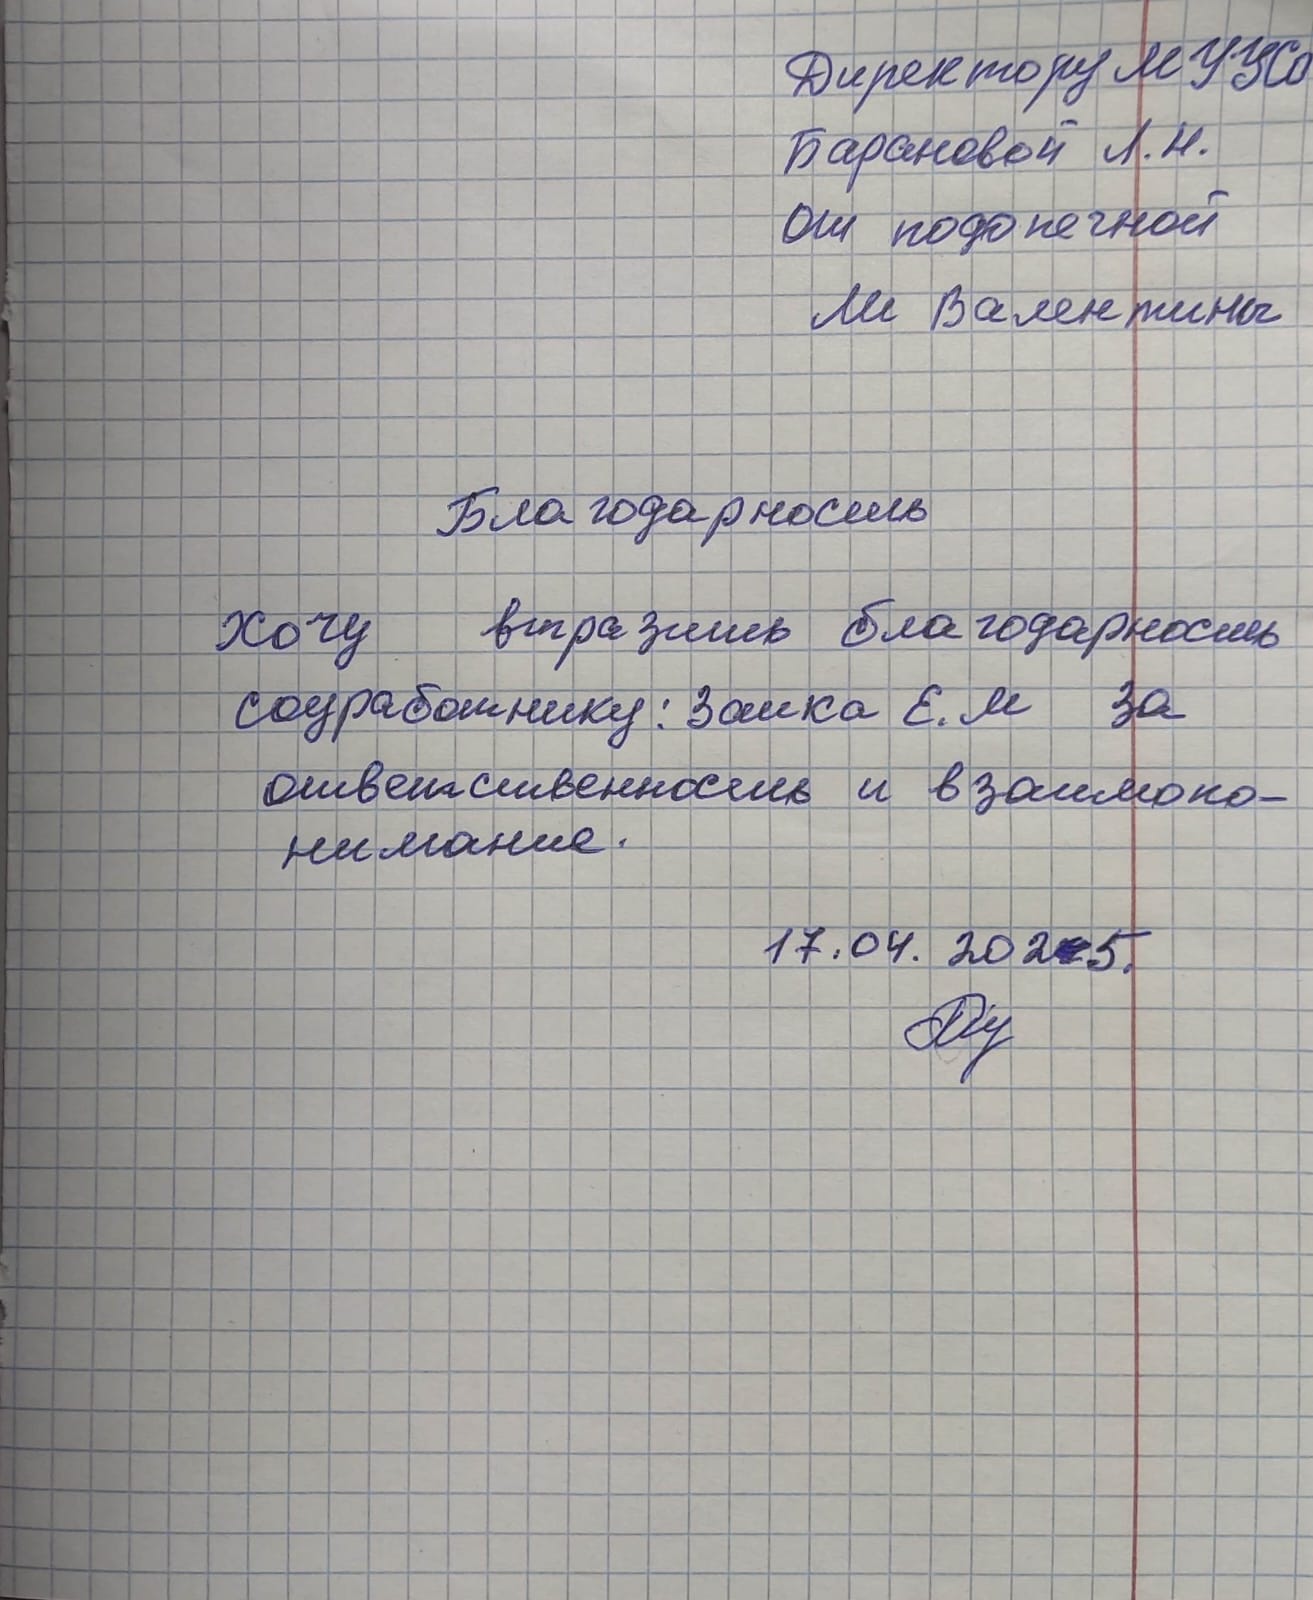 Директору МУЦСО
Барановой Л.Н.
от подопечной
Ли Валентины
Благодарность
Хочу выразить благодарность
соцработнику: Заика Е.М за
ответственность и взаимопо-
нимание.
17.04.2025.